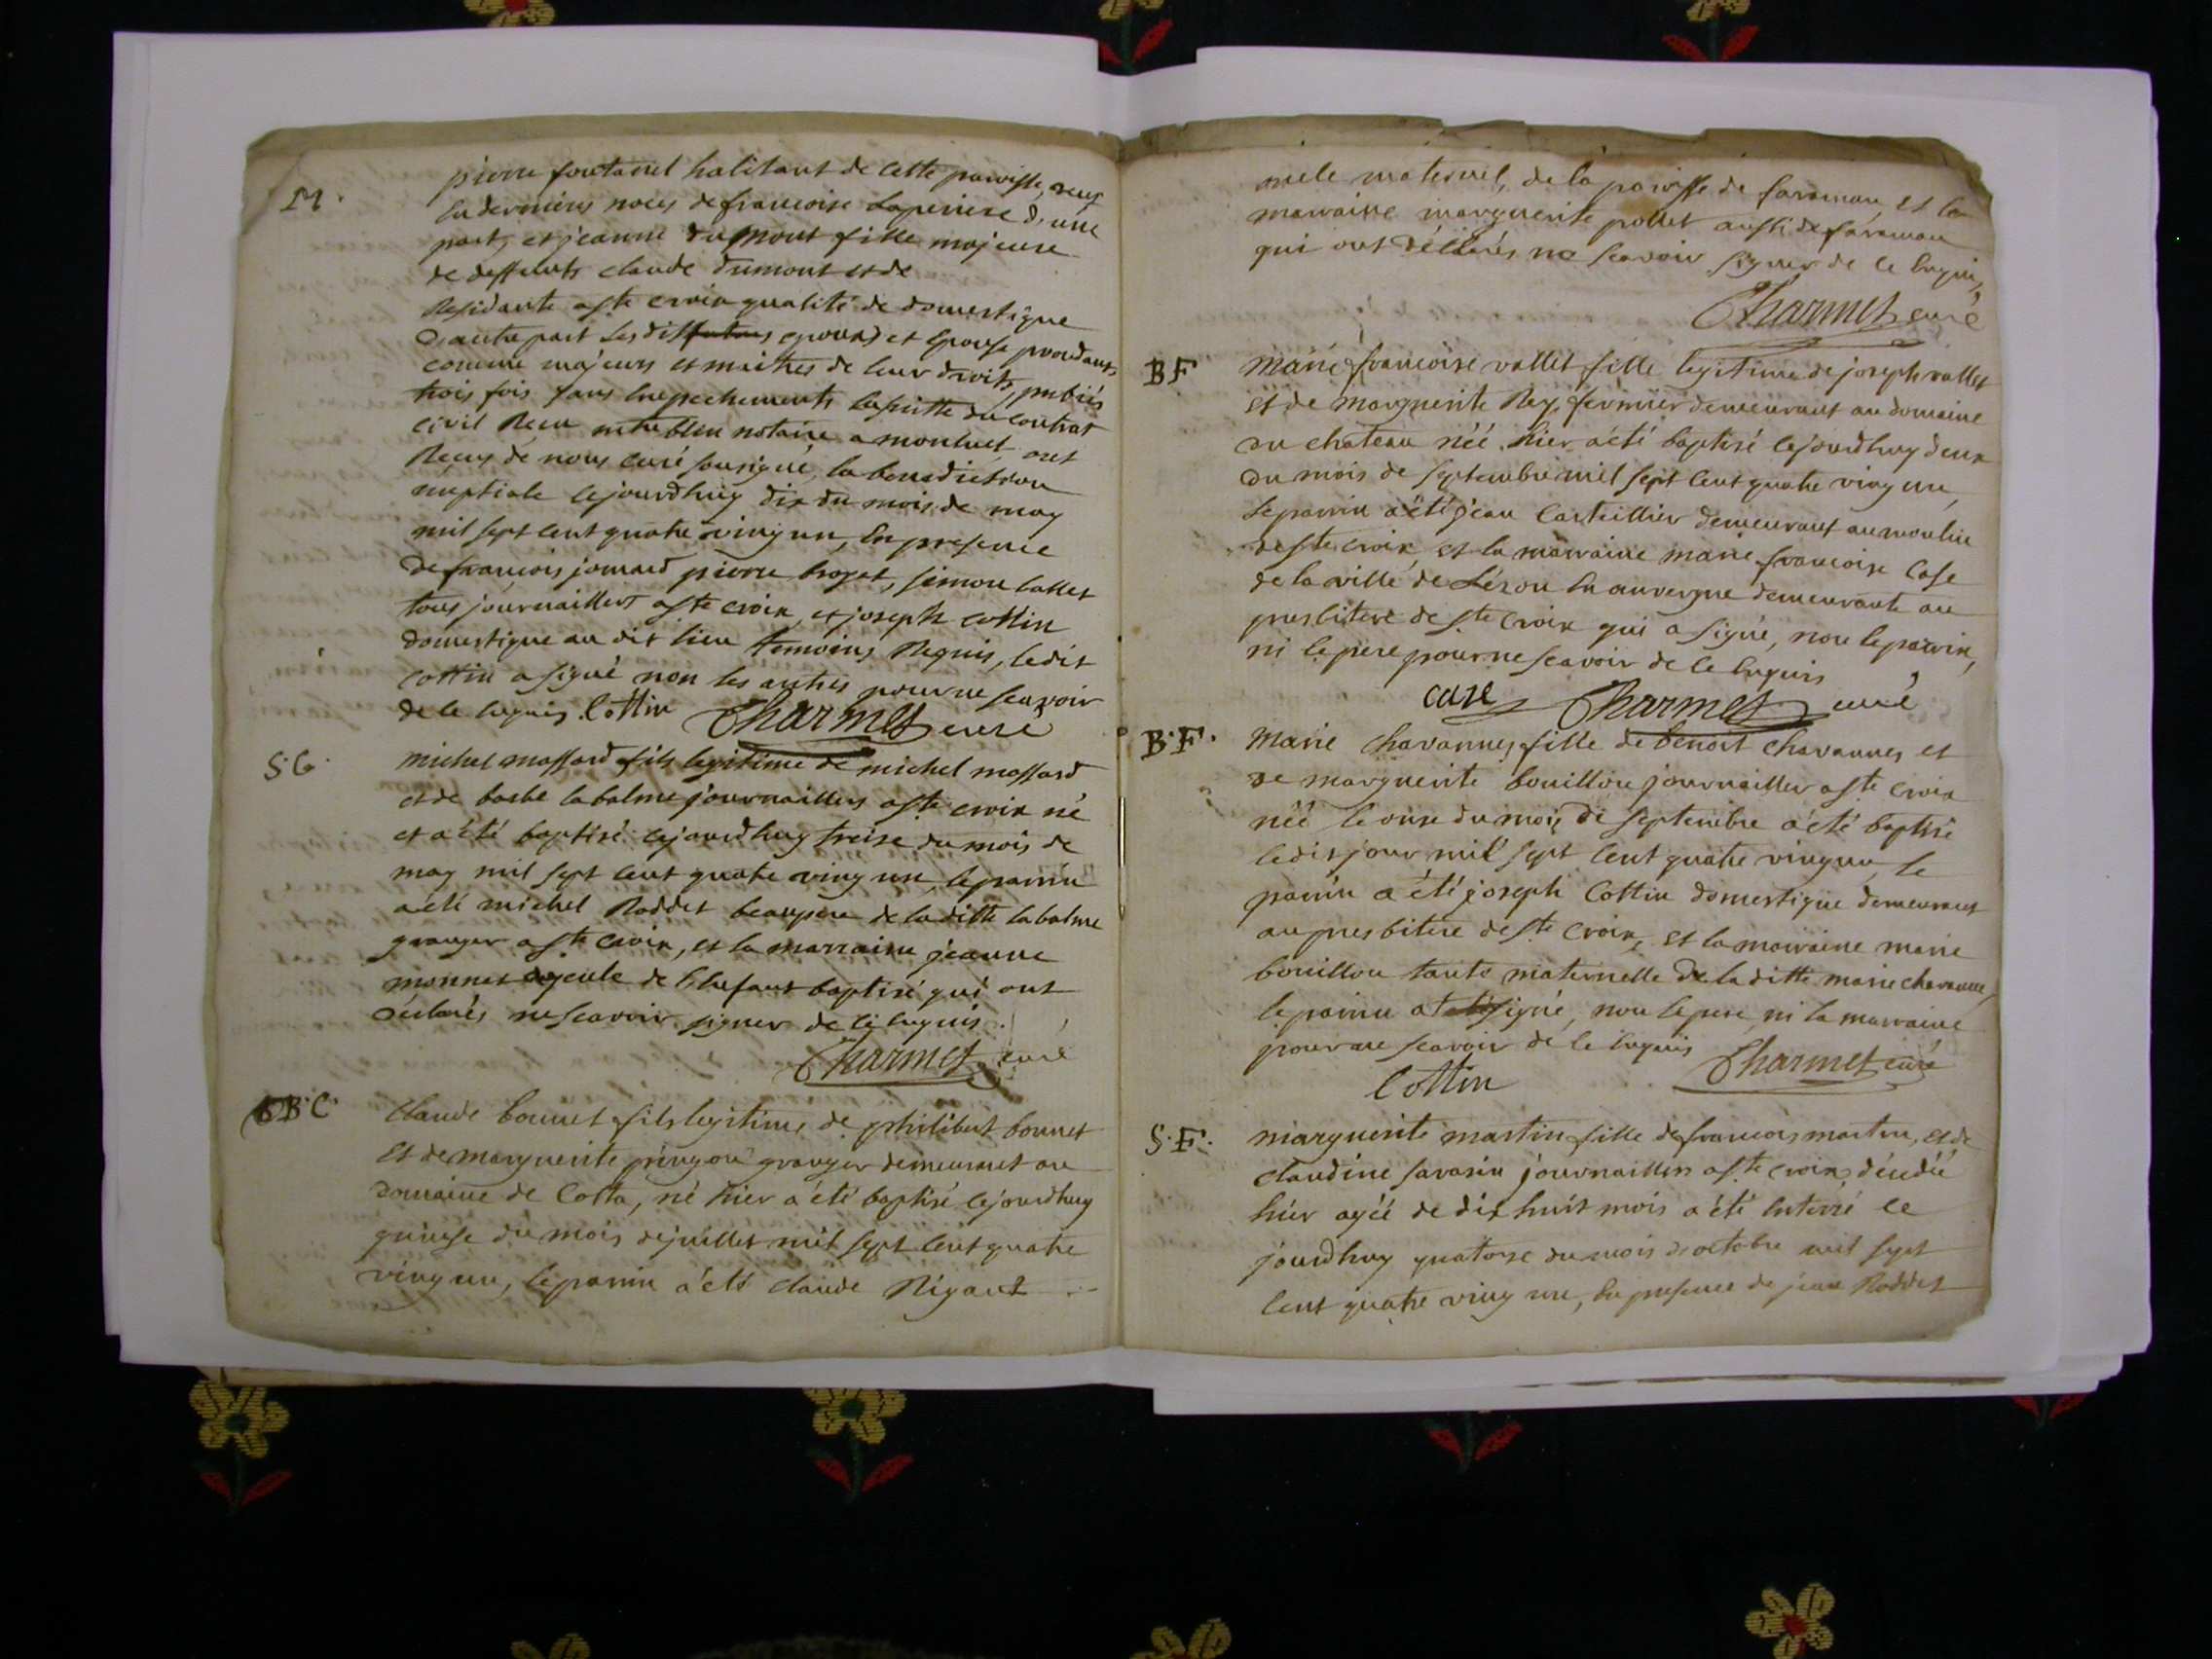 M.
pierre fontanel habitant de cette paroisse, veuf
en derniers noces de francoise Laperiere d'une
part, et jeanne dumont fille majeure
de deffunts claude dumont et de
Residante a ste croix qualité de domestique
d'autre part Lesdits futurs epoux et epouse procedants
comme majeurs et maitres de leur droits, publiés
trois fois sans empechements ensuitte du contrat
civil Reçu notaire a montluel ont
Reçus de nous curé sousigné, la benediction
nuptiale cejourdhuy dix du mois de may
mil sept cent quatre ving un, en presence
de francois jomard pierre troget, simon vallet
tous journaillers a ste croix, et joseph cottin
domestique au dit lieu temoins Requis, ledit
cottin a signé non les autres pour ne scavoir
de ce enquis. Cottin Charmet curé
S.G.
michel massard fils legitime de michel massard
et de barbe labalme journaillers a ste croix né
et a été baptisé cejourdhuy treise du mois de
may mil sept cent quatre ving un, le parrin
a été michel Roddet beaupere de laditte labalme
granger a ste croix, et la marraine jeanne
monnet ayeule de l'enfant baptisé qui ont
déclarés ne scavoir signer de ce enquis.
Charmet curé
B.C.
Claude bonnet fils legitime de philibert bonnet
et de marguerite pringon granger demeurant au
domaine de Costa, né hier a été baptisé cejourdhuy
quinse du mois de juillet mil sept cent quatre
ving un, le parrin a été claude Rigaut
oncle maternel, de la paroisse de faraman, et la
marraine marguerite pollet aussi de faraman
qui ont déclarés ne scavoir signer de ce enquis,
Charmet curé
BF
Marie francoise vallet fille legitime de joseph vallet
et de marguerite Rey, fermier demeurant au domaine
du chateau néé hier a été baptisé cejourdhuy deux
du mois de septembre mil sept cent quatre ving un,
Le parrin a été jean Carteillier demeurant au moulin
de ste croix, et la marraine marie francoise Case
de la ville de Lezou en auvergne demeurante au
presbitere de ste croix qui a signé, non le parrin,
ni le pere pour ne scavoir de ce enquis
case Charmet curé
B.F.
Marie Chavannes fille de benoit Chavannes et
de marguerite bouillon journailler a ste croix
néé le onse du mois de septembre a été baptisé
ledit jour mil sept cent quatre ving un, le
parrin a été joseph Cottin domestique demeurant
au presbitere de ste croix, et la marraine marie
bouillon tante maternelle de laditte marie chavannes,
le parrin a signé, non le pere, ni la marraine
pour ne scavoir de ce enquis Charmet curé
Cottin
S.F.
marguerite martin fille de francois martin, et de
claudine savarin journaillers a ste croix, décédéé
hier agéé de dix huit mois a été enterré ce
jourdhuy quatorse du mois d'octobre mil sept
cent quatre ving un, en presence de jean Roddet